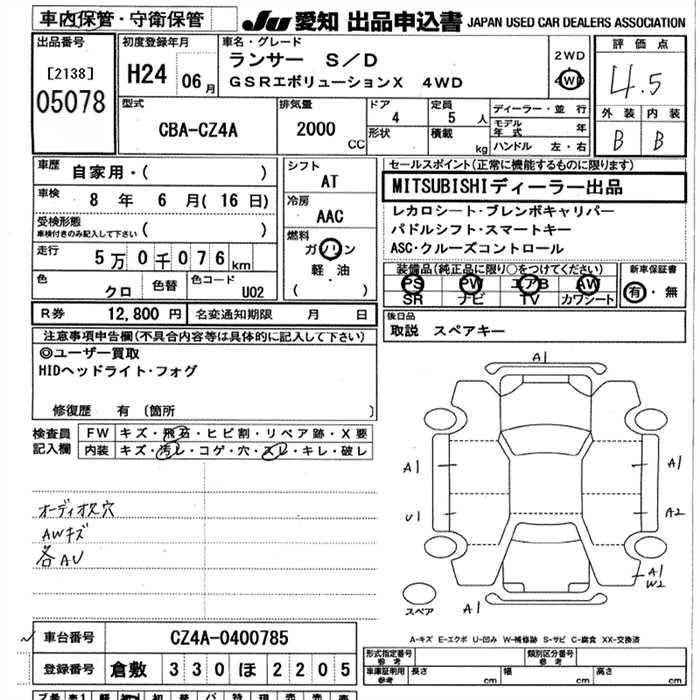 車内保管・守衛保管
JU 愛知 出品申込書 JAPAN USED CAR DEALERS ASSOCIATION
出品番号
[2138]
05078
初度登録年月
H24 06月
車名・グレード
ランサー S/D
GSRエボリューションX 4WD
2WD
4WD
評価点
4.5
外装 内装
B B
型式
CBA-CZ4A
排気量
2000
CC
ドア
4
形状
定員
5人
積載
kg
ディーラー・並行
モデル年式 年
ハンドル 左・右
車歴
自家用・( )
車検
8年 6月(16日)
受検形態
車検付きのみ記入して下さい ( )
走行
5万0千076km
色
クロ
色替
色コード
U02
シフト
AT
冷房
AAC
燃料
ガソリン
軽・油
( )
セールスポイント(正常に機能するものに限ります)
MITSUBISHIディーラー出品
レカロシート・ブレンボキャリパー
パドルシフト・スマートキー
ASC・クルーズコントロール
装備品(純正品に限り○をつけてください)
PS PW エアB AW
SR ナビ TV カワシート
新車保証書
有・無
R券 12,800円 名変通知期限 月 日
後日品
取説 スペアキー
注意事項申告欄(不具合内容等は具体的に記入して下さい)
◎ユーザー買取
HIDヘッドライト・フォグ
修復歴 有 〔箇所 〕
検査員記入欄
FW キズ・飛石・ヒビ割・リペア跡・X要
内装 キズ・汚レ・コゲ・穴・スレ・キレ・破レ
オーディオス穴
AWキズ
各AU
A1
A1
A1
U1
A2
A1
W2
A1
スペア
A-キズ E-エクボ U-凹み W-補修跡 S-サビ C-腐食 XX-交換済
車台番号 CZ4A-0400785
登録番号 倉敷 330 ほ 2205
形式指定番号 参考
類別区分番号 参考
車庫証明用 参考 長さ cm 幅 cm 高さ cm